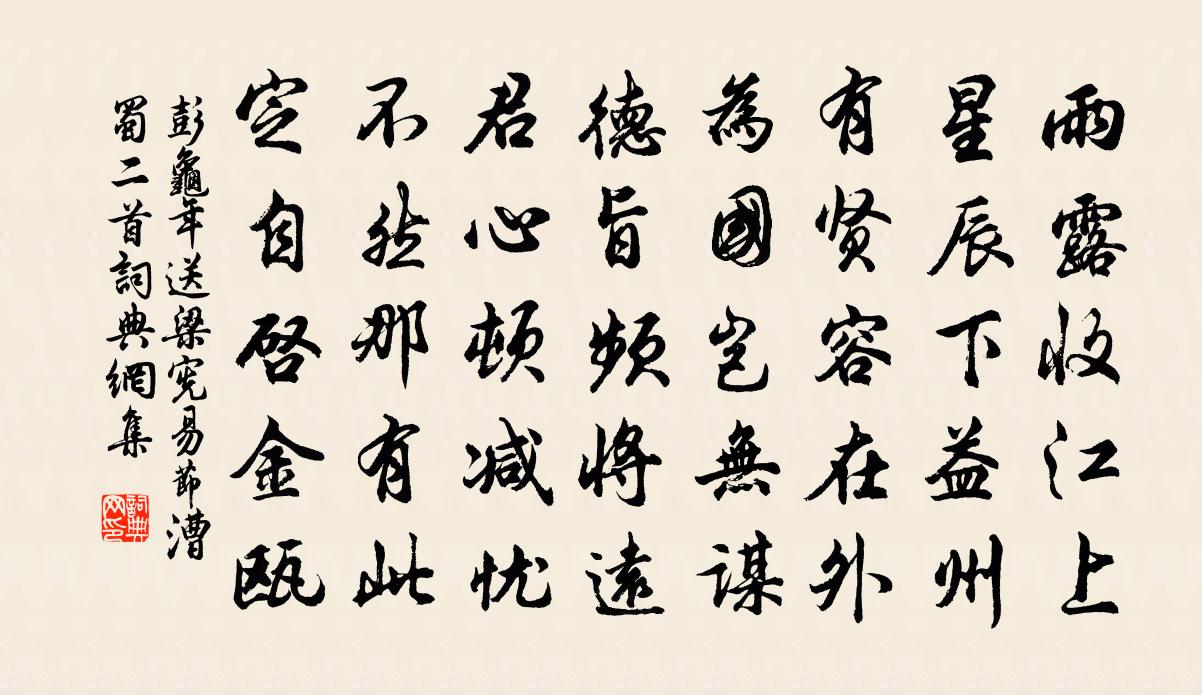 雨露收江上
星辰下益州
有贤容在外
為國岂無謀
德旨頻將遠
君心顿减忧
不然那有此
定自啓金瓯
彭龜年送梁寃易節漕
蜀二首詞典網集
詞典網印